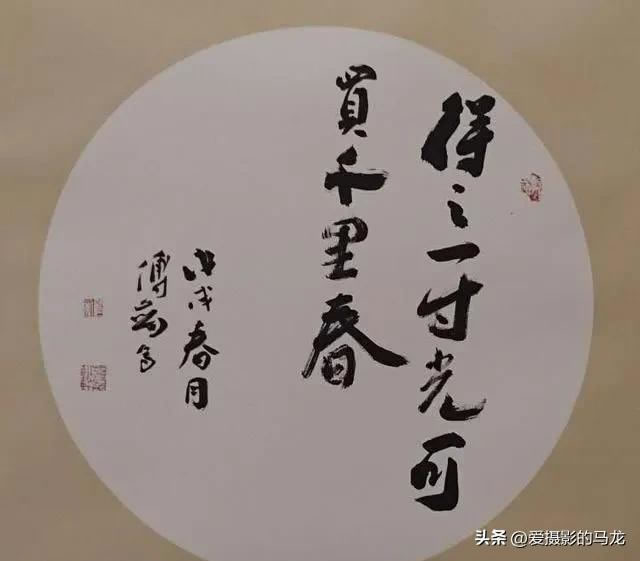 得之一寸光可
買千里春
戊戌春月
傅
头条 @爱摄影的马龙